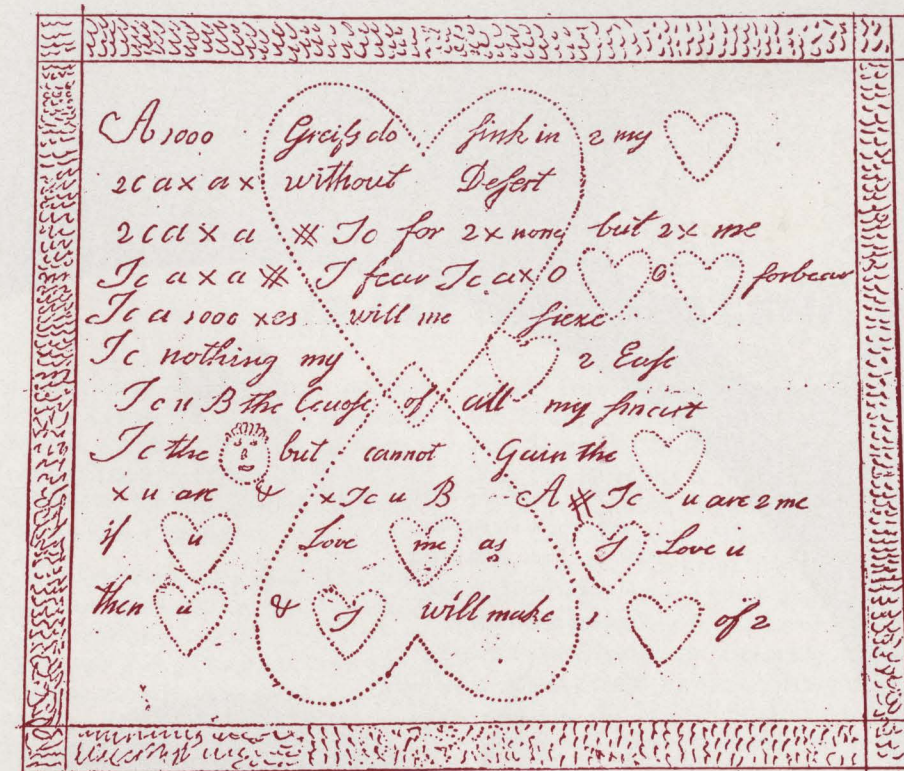 A 1000 Greifs do sink in 2 my
2 c a x a x without Desert
2 c a x a ※ I c for 2 x none but 2 x me
I c a x a ※ I fear I c a x 0 0 forbear
I c a 1000 xes will me
I c nothing my 2 Ease
I c u B the Cause of all my smart
I c the but cannot Gain the
x u are & x I c u B A ※ I c u are 2 me
if u Love me as I Love u
then u & I will make 1 of 2